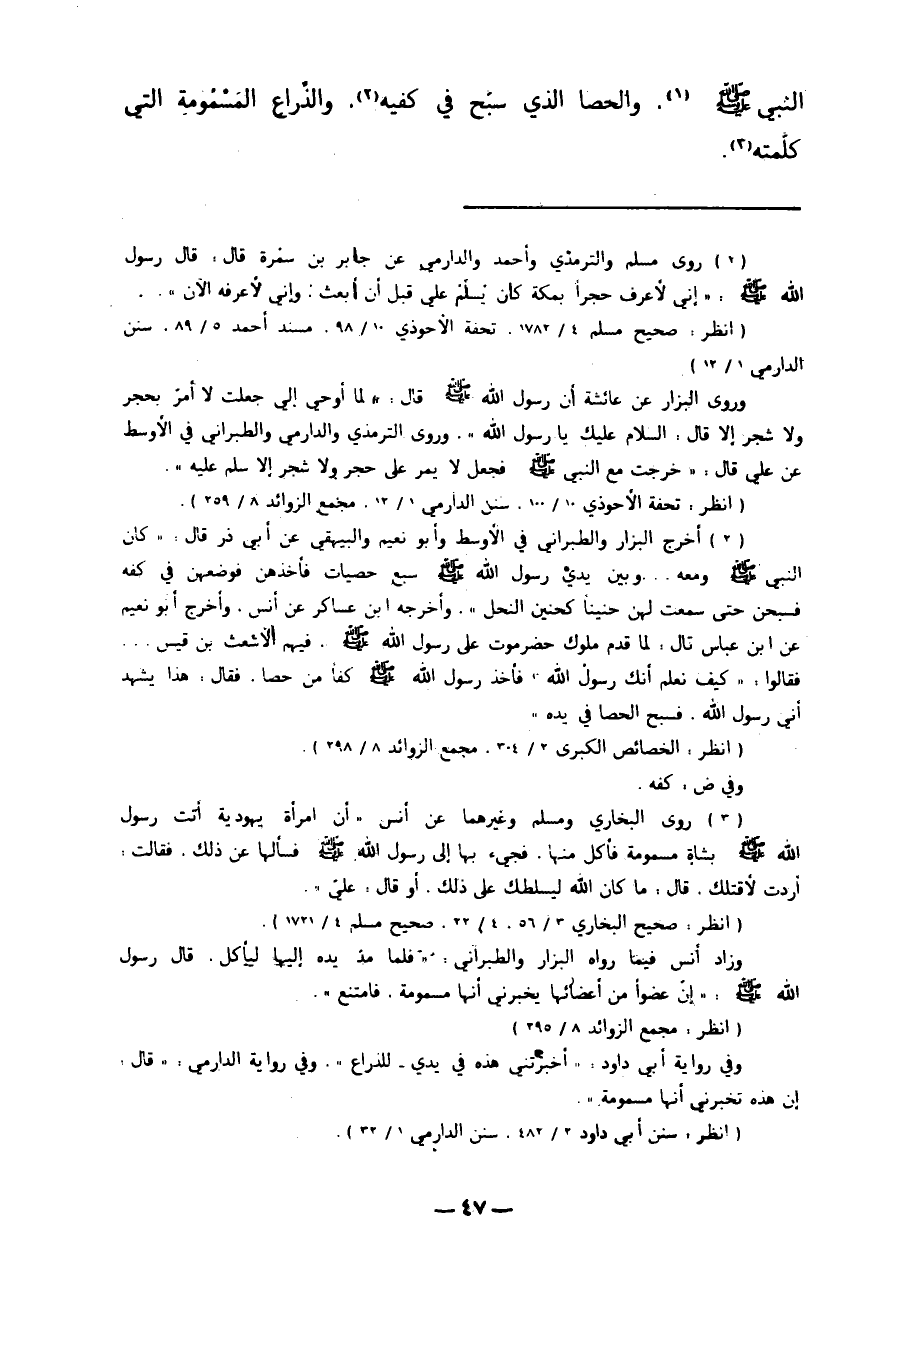 النبي ﷺ (١). والحصا الذي سبّح في كفيه(٢). والذّراع المَسْمُومة التي
كلّمته(٣).
(١) روى مسلم والترمذي وأحمد والدارمي عن جابر بن سمُرة قال : قال رسول
الله ﷺ : « إني لأعرف حجراً بمكة كان يُسلّمْ علي قبل أن أبعث : وإني لأعرفه الآن » .
( انظر : صحيح مسلم ٤ / ١٧٨٢ . تحفة الأحوذي ١٠ / ٩٨ . مسند أحمد ٥ / ٨٩ . سنن
الدارمي ١ / ١٢ )
وروى البزار عن عائشة أن رسول الله ﷺ قال : « لما أوحي إلي جعلت لا أمرّ بحجر
ولا شجر إلا قال : السلام عليك يا رسول الله » . وروى الترمذي والدارمي والطبراني في الأوسط
عن علي قال : « خرجت مع النبي ﷺ فجعل لا يمر على حجر ولا شجر إلا سلم عليه » .
( انظر : تحفة الأحوذي ١٠ / ١٠٠ . سنن الدارمي ١ / ١٢ . مجمع الزوائد ٨ / ٢٥٩ ) .
(٢) أخرج البزار والطبراني في الأوسط وأبو نعيم والبيهقي عن أبي ذر قال : « كان
النبي ﷺ ومعه ... وبين يديْ رسول الله ﷺ سبع حصيات فأخذهن فوضعهن في كفه
فسبحن حتى سمعت لهن حنيناً كحنين النحل » . وأخرجه ابن عساكر عن أنس . وأخرج أبو نعيم
عن ابن عباس قال : لما قدم ملوك حضرموت على رسول الله ﷺ . فيهم الأشعث بن قيس ...
فقالوا : « كيف نعلم أنك رسول الله . فأخذ رسول الله ﷺ كفاً من حصا . فقال : هذا يشهد
أني رسول الله . فسبح الحصا في يده »
( انظر : الخصائص الكبرى ٢ / ٣٠٤ . مجمع الزوائد ٨ / ٢٩٨ ) .
وفي ض : كفه .
(٣) روى البخاري ومسلم وغيرهما عن أنس « أن امرأة يهودية أتت رسول
الله ﷺ بشاةٍ مسمومة فأكل منها . فجيء بها إلى رسول الله ﷺ فسألها عن ذلك . فقالت :
أردت لأقتلك . قال : ما كان الله ليسلطك على ذلك . أو قال : عليّ » .
( انظر : صحيح البخاري ٣ / ٥٦ . ٤ / ٢٢ . صحيح مسلم ٤ / ١٧٢١ ) .
وزاد أنس فيما رواه البزار والطبراني : « فلما مدّ يده إليها ليأكل . قال رسول
الله ﷺ : « إنّ عضواً من أعضائها يخبرني أنها مسمومة . فامتنع » .
( انظر : مجمع الزوائد ٨ / ٢٩٥ )
وفي رواية أبي داود : « أخبرتني هذه في يدي ـ للذراع » . وفي رواية الدارمي : « قال :
إن هذه تخبرني أنها مسمومة » .
( انظر : سنن أبي داود ٢ / ٤٨٢ . سنن الدارمي ١ / ٣٢ ) .
— ٤٧ —